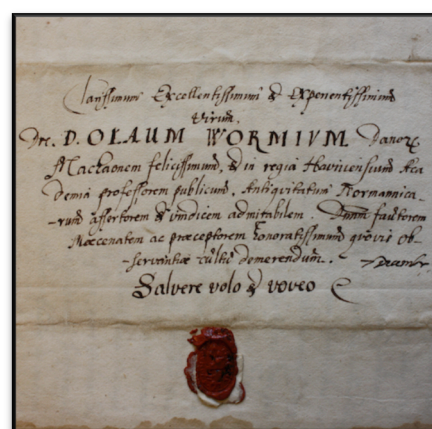 Clarissimum Excellentissimum & Experientissimum
Virum,
Dn. D. OLAUM WORMIVM Danorū
Machaonem felicissimum, & in regia Havniensium Aca
demia professorem publicum, Antiquitatum Normannica-
-rum assertorem & vindicem admirabilem. Dnum fautorem
Mœcenatem ac præceptorem honoratissimum quovis ob-
-servantiæ cultu demerendum.
Salvere volo & voveo